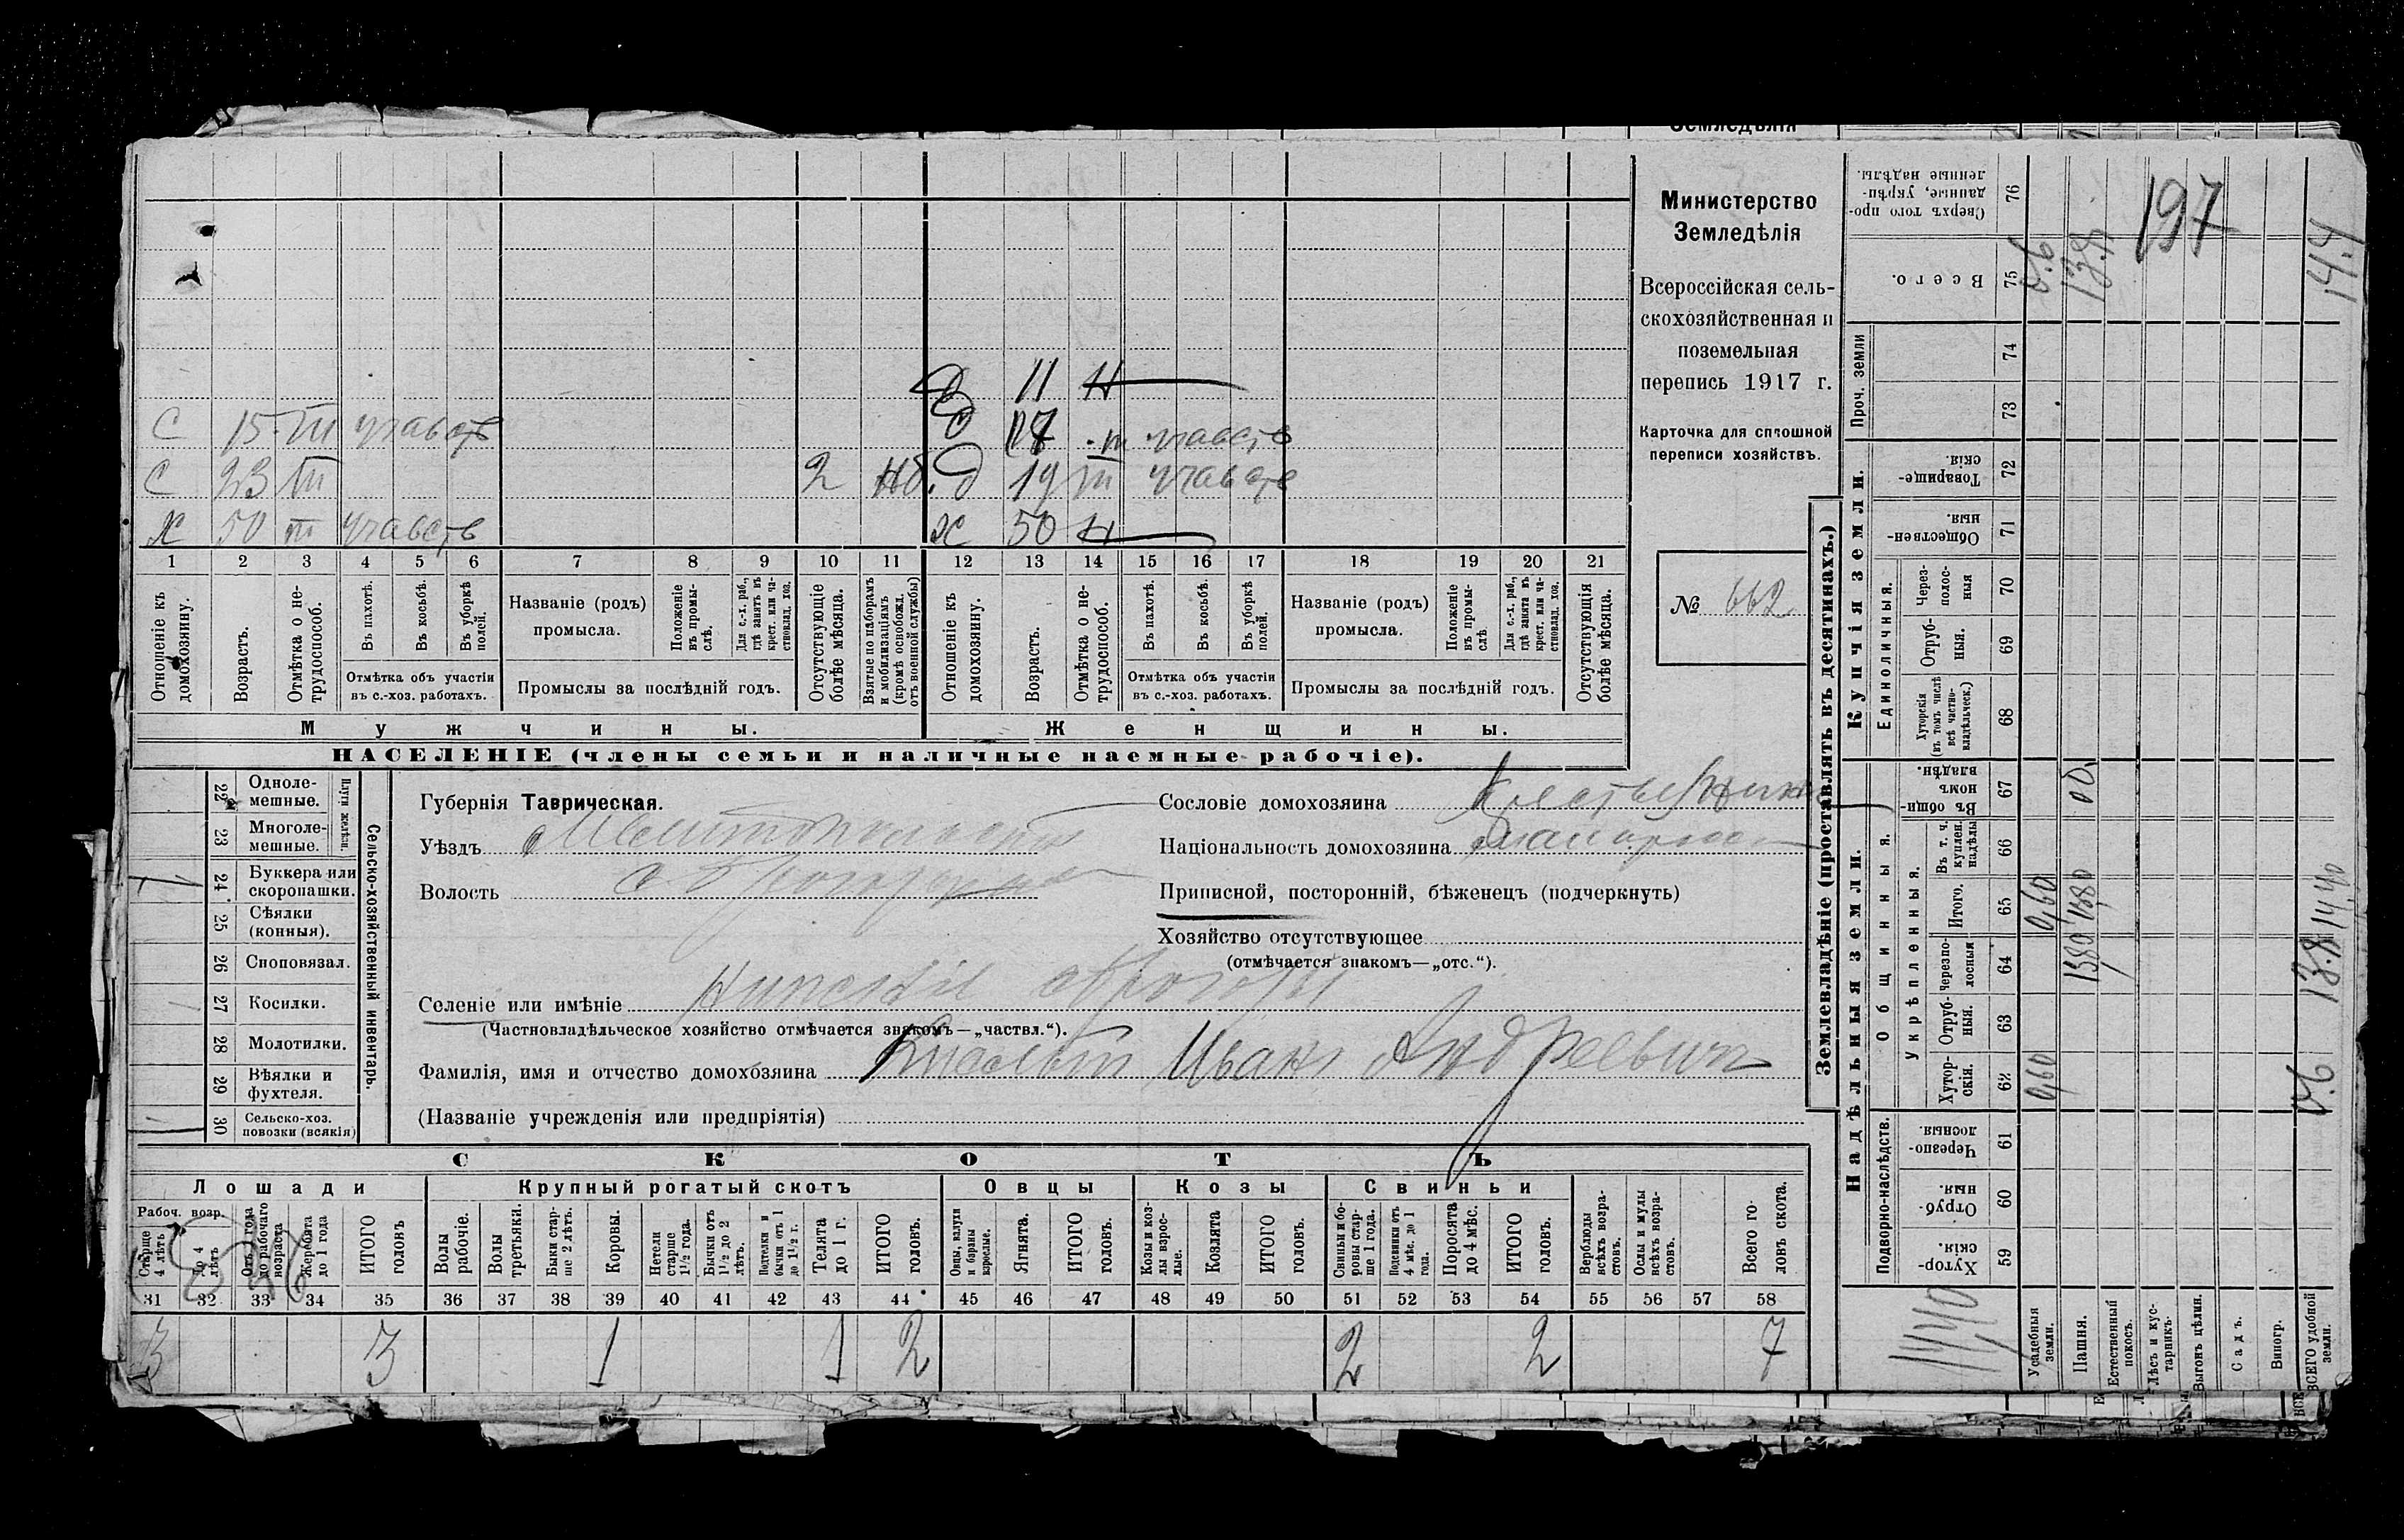 Министерство
Земледѣлія
Всероссійская сель-
скохозяйственная и
поземельная
перепись 1917 г.
Карточка для сплошной
переписи хозяйствъ.
№ 662
Д 11 Н
С 15 m участв
Д 17 m участв
С 23 m 2 Нб.
д 19 m участв
Х 50 m участв
Ж 50 Н
1 2 3 4 5 6 7 8 9 10 11 12 13 14 15 16 17 18 19 20 21
Отношеніе къ домохозяину.
Возрастъ.
Отмѣтка о не-трудоспособ.
Въ пахотѣ.
Въ косьбѣ.
Въ уборкѣ полей.
Отмѣтка объ участіи
въ с.-хоз. работахъ.
Названіе (родъ)
промысла.
Положеніе въ промы-слѣ.
Для с.-х. раб., гдѣ занятъ въ крест. или ча-стновлад. хоз.
Промыслы за послѣдній годъ.
Отсутствующіе болѣе мѣсяца.
Взятые по наборамъ и мобилизаціямъ (кромѣ освобожд. отъ военной службы)
Отношеніе къ домохозяину.
Возрастъ.
Отмѣтка о не-трудоспособ.
Въ пахотѣ.
Въ косьбѣ.
Въ уборкѣ полей.
Отмѣтка объ участіи
въ с.-хоз. работахъ.
Названіе (родъ)
промысла.
Положеніе въ промы-слѣ
Для с.-х. раб., гдѣ занята въ крест. или ча-стновлад. хоз.
Промыслы за послѣдній годъ.
Отсутствующія болѣе мѣсяца.
Мужчины.
Женщины.
НАСЕЛЕНІЕ (члены семьи и наличные наемные рабочіе).
22 Одноле-мешные.
23 Многоле-мешные.
Плуги желѣзн.
24 Буккера или скоропашки.
25 Сѣялки (конныя).
26 Сноповязал.
27 Косилки.
28 Молотилки.
29 Вѣялки и фухтеля.
30 Сельско-хоз. повозки (всякія)
Сельско-хозяйственный инвентарь.
Губернія Таврическая.
Уѣздъ
Волость
Сословіе домохозяина
Національность домохозяина
Приписной, посторонній, бѣженецъ (подчеркнуть)
Хозяйство отсутствующее
(отмѣчается знакомъ—„отс.“).
Селеніе или имѣніе
(Частновладѣльческое хозяйство отмѣчается знакомъ—„частвл.“).
Фамилія, имя и отчество домохозяина Иванъ Андреевич
(Названіе учрежденія или предпріятія)
СКОТЪ
Лошади
Крупный рогатый скотъ
Овцы
Козы
Свиньи
Рабоч. возр.
Старше 4 лѣтъ
До 4 лѣтъ
Отъ 1 года до рабочаго возраста
Жеребята до 1 года
ИТОГО головъ
Волы рабочіе.
Волы третьяки.
Быки стар-ше 2 лѣтъ.
Коровы.
Нетели старше 1½ года.
Бычки отъ 1½ до 2 лѣтъ.
Подтелки и бычки отъ 1 до 1½ г.
Телята до 1 г.
ИТОГО головъ.
Овцы, валухи и бараны взрослые.
Ягнята.
ИТОГО головъ.
Козы и коз-лы взрос-лые.
Козлята
ИТОГО головъ.
Свиньи и бо-ровы стар-ше 1 года.
Подсвинки отъ 4 мѣс. до 1 года.
Поросята до 4 мѣс.
ИТОГО головъ.
Верблюды всѣхъ возра-стовъ.
Ослы и мулы всѣхъ возра-стовъ.
Всего го-ловъ скота.
31 32 33 34 35 36 37 38 39 40 41 42 43 44 45 46 47 48 49 50 51 52 53 54 55 56 57 58
3 3 1 1 2 2 2 7
Землевладѣніе (проставлять въ десятинахъ.)
Надѣльныя земли.
Купчія земли.
Проч. земли
Подворно-наслѣдств.
Общинныя.
Укрѣпленныя.
Единоличныя.
59 Хутор-скія.
60 Отруб-ныя.
61 Черезпо-лосныя.
62 Хутор-скія.
63 Отруб-ныя.
64 Черезпо-лосныя
65 Итого.
66 Въ т. ч. куплен. надѣлы
67 Въ общин-номъ владѣн.
68 Хуторскія (въ томъ числѣ всѣ частно-владѣльческ.)
69 Отруб-ныя.
70 Через-полос-ныя
71 Обществен-ныя.
72 Товарище-скія.
73
74
75 Всего.
76 Сверхъ того про-данные, укрѣп-ленные надѣлы.
Усадебныя земли. 0,60 0,60 0.6
Пашня. 1380 1380 13.8
Естественный покосъ.
Лѣсъ и кус-тарникъ.
Выгонъ цѣлин.
Садъ.
Виногр.
ВСЕГО удобной земли. 0.6 13.8 14,40 14.4
197
14,40